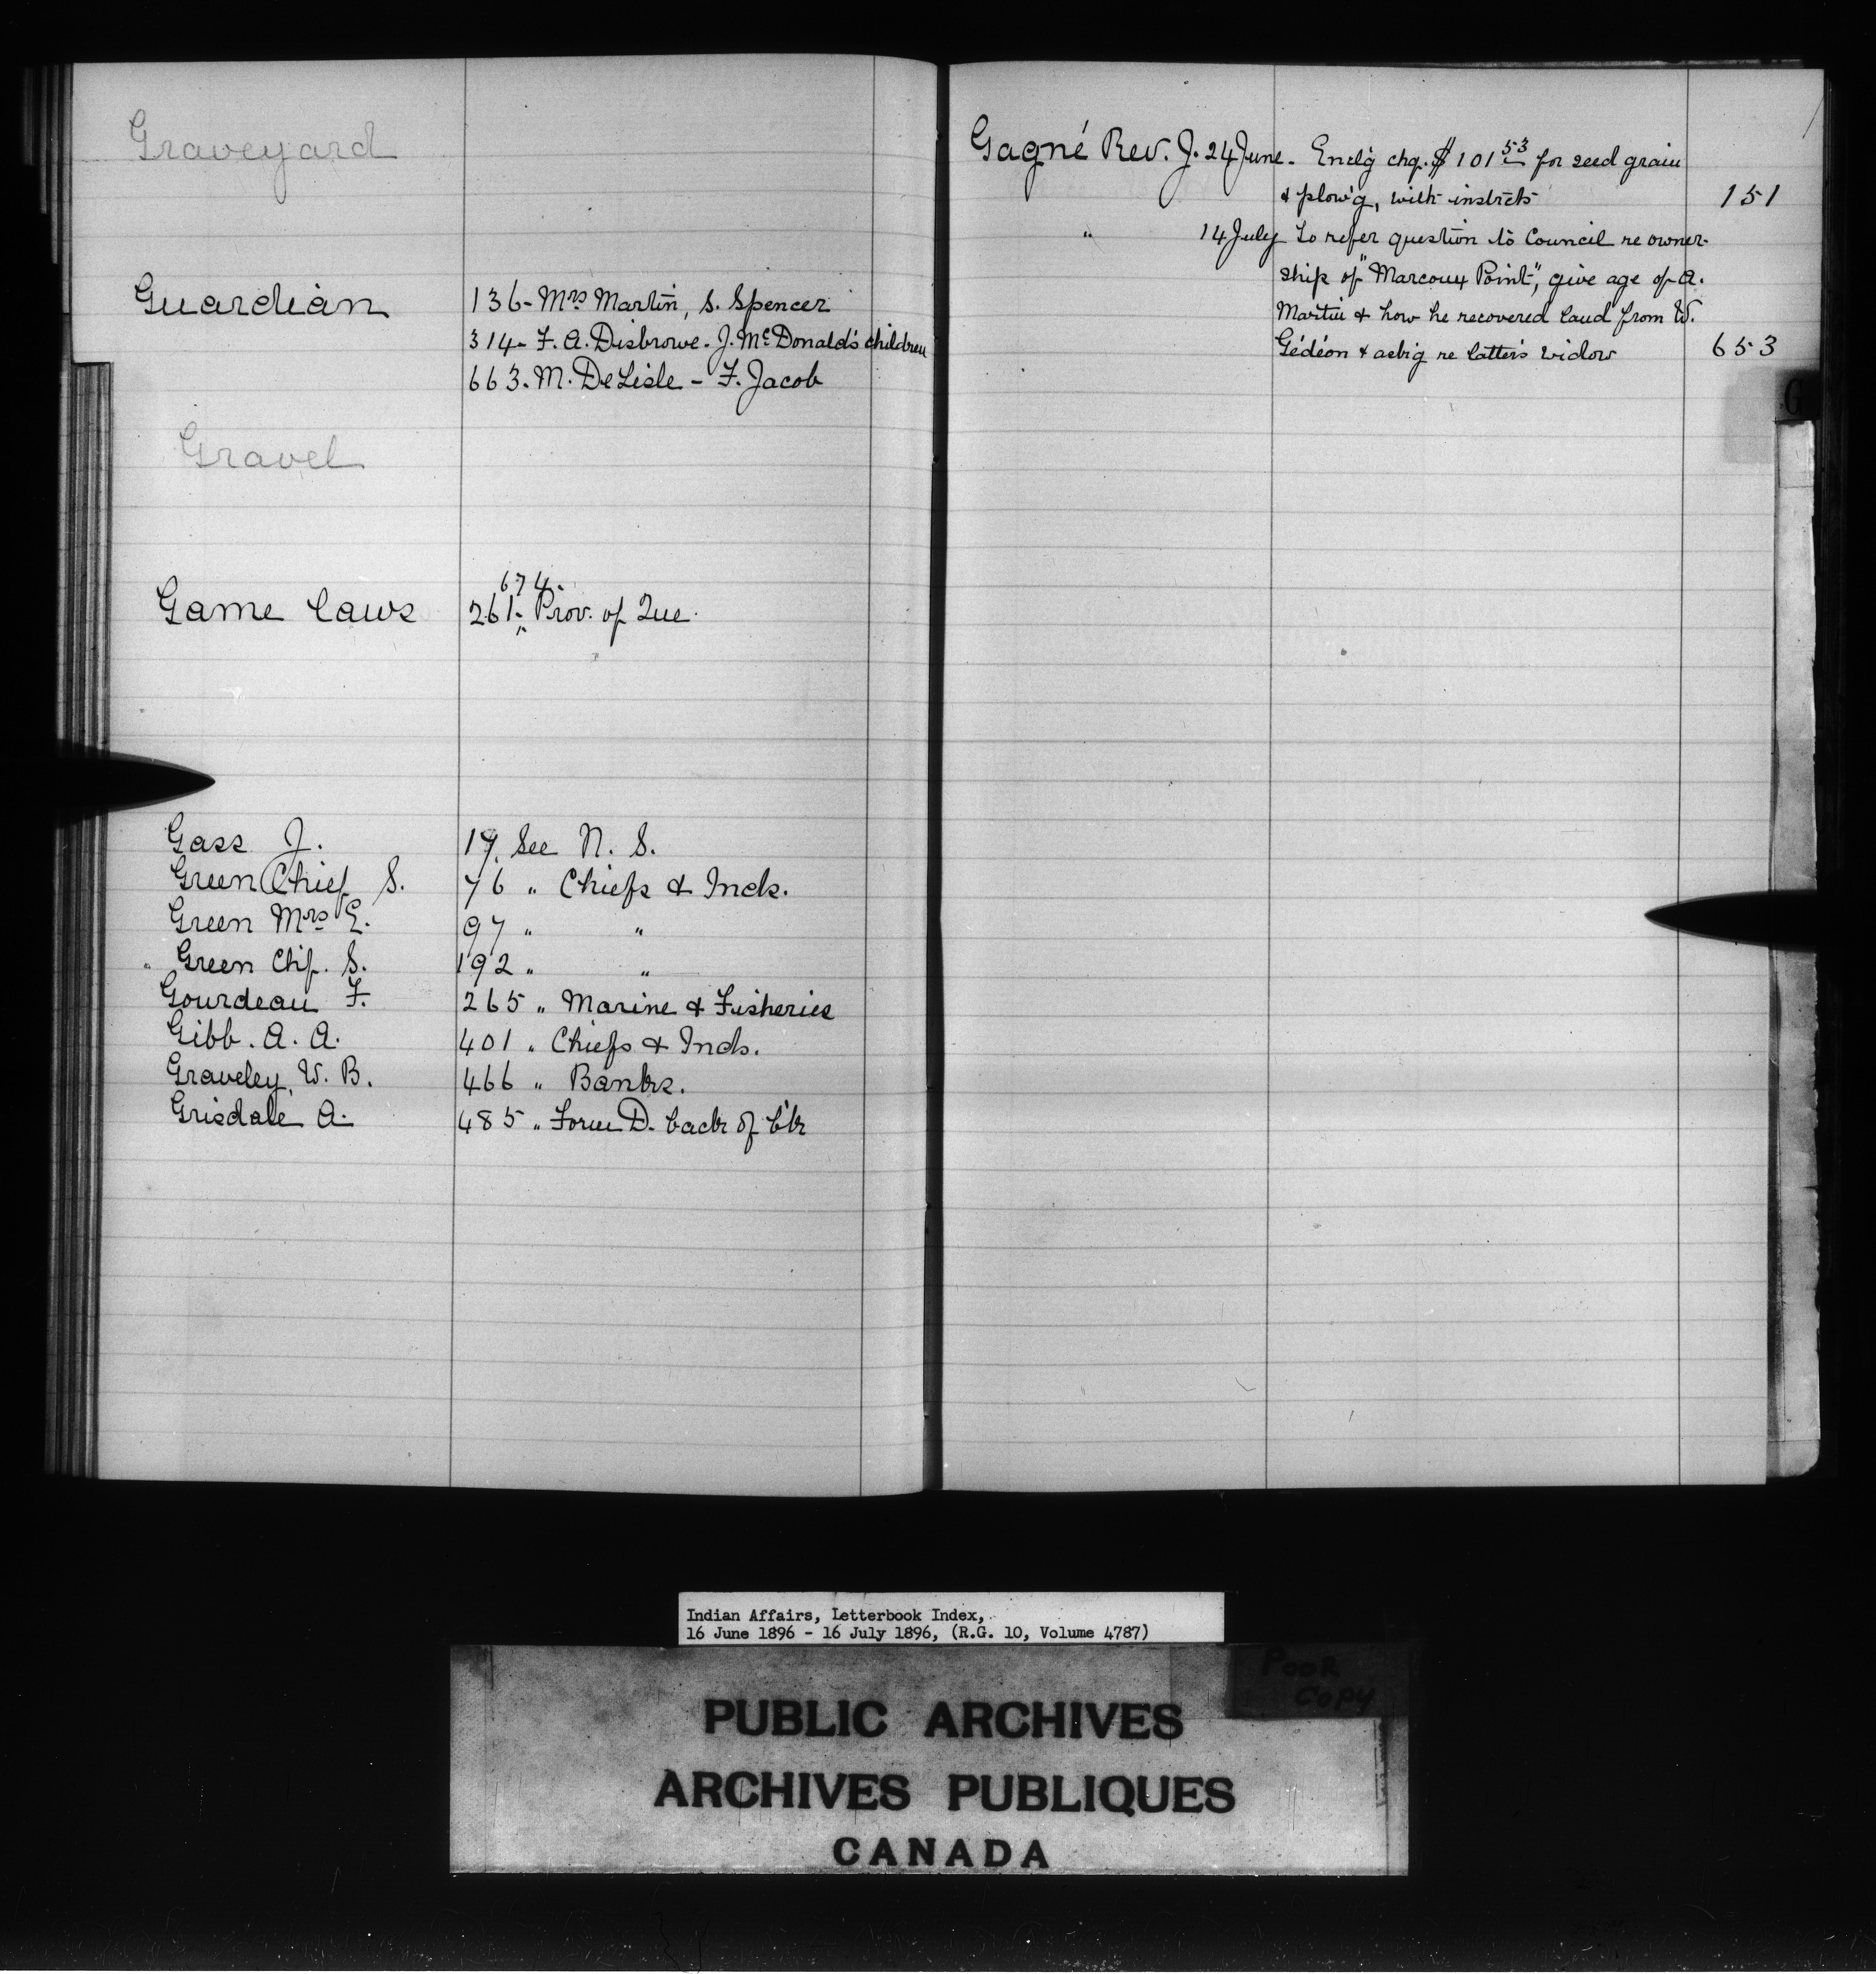 Graveyard
Guardian 136- Mrs Martin, S. Spencer
314- F. A. Disbrowe - J. McDonald's children
663. M. DeLisle - F. Jacob
Gravel
674.
Game laws 261- Prov. of Que.
"
Gass J. 17. See N. S.
Green Chief S. 76 " Chiefs & Inds.
Green Mrs E. 97 " "
" Green Chf. S. 192 " "
Gourdeau F. 265 " Marine & Fisheries
Gibb. A. A. 401 " Chiefs & Inds.
Graveley, W. B. 466 " Banks.
Grisdale A. 485 " Form D. back of b'k
Gagné Rev. J. 24 June - Encl'g chq. $101 53 for seed grain
& plow'g, with instrcts 151
" 14 July To refer question to Council re owner-
ship of "Marcoux Point", give age of A.
Martin & how he recovered land from W.
Gédéon & askig re latter's widow 653
G
Indian Affairs, Letterbook Index,
16 June 1896 - 16 July 1896, (R.G. 10, Volume 4787)
POOR
COPY
PUBLIC ARCHIVES
ARCHIVES PUBLIQUES
CANADA